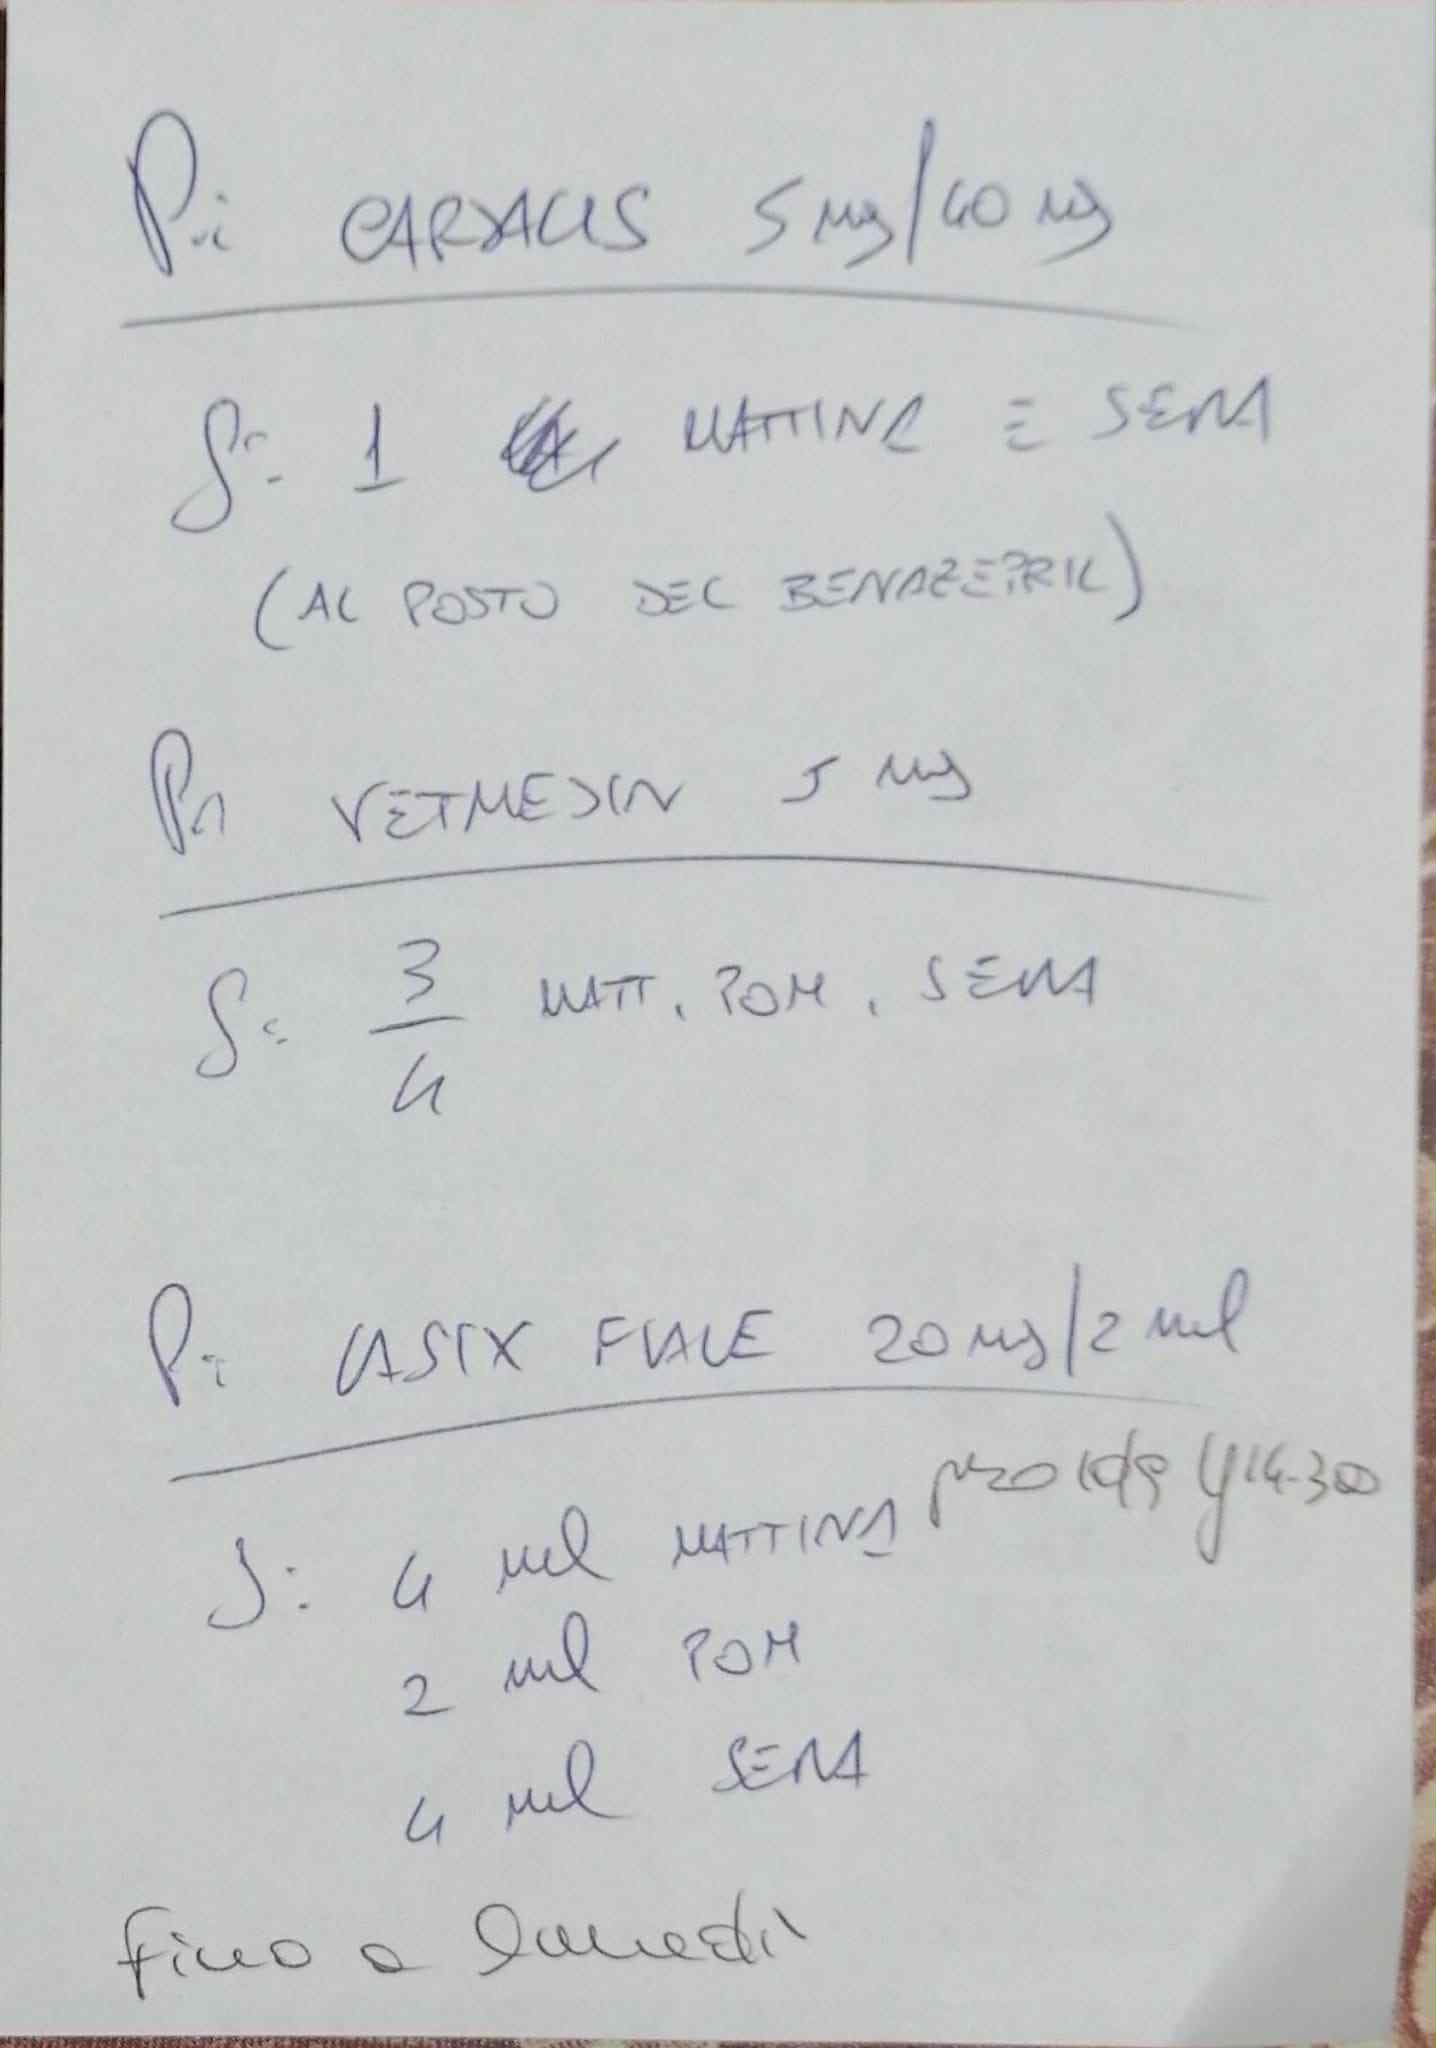 P: CARDALIS 5 mg/40 mg
S: 1 MATTINA E SERA
(AL POSTO DEL BENAZEPRIL)
P: VETMEDIN 5 mg
S: 3/4 MATT. POM. SERA
P: LASIX FIALE 20 mg/2 ml
S: 4 ml MATTINA
2 ml POM
4 ml SERA
fino a lunedì